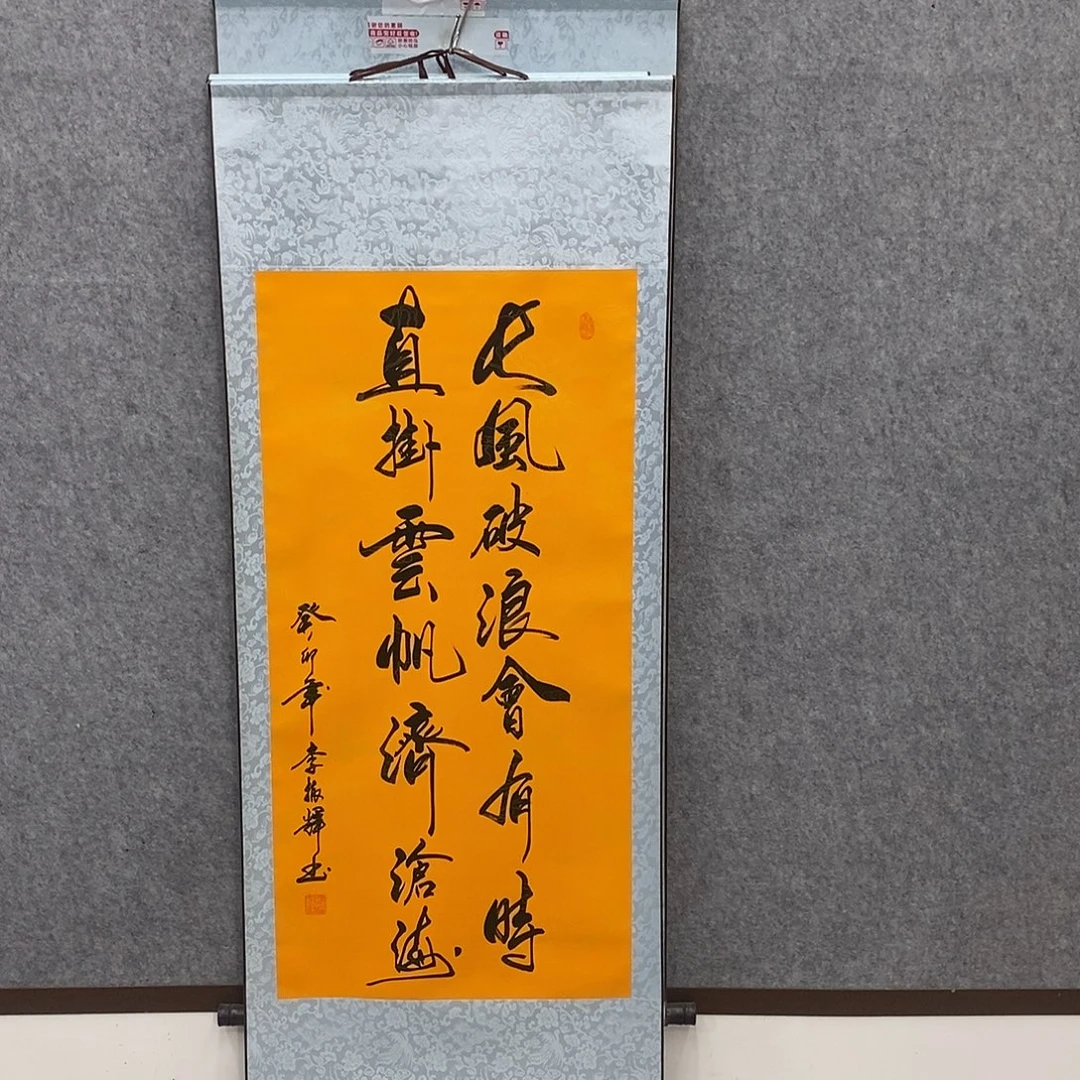 長風破浪會有時
直掛雲帆濟滄海
癸卯年李振輝书